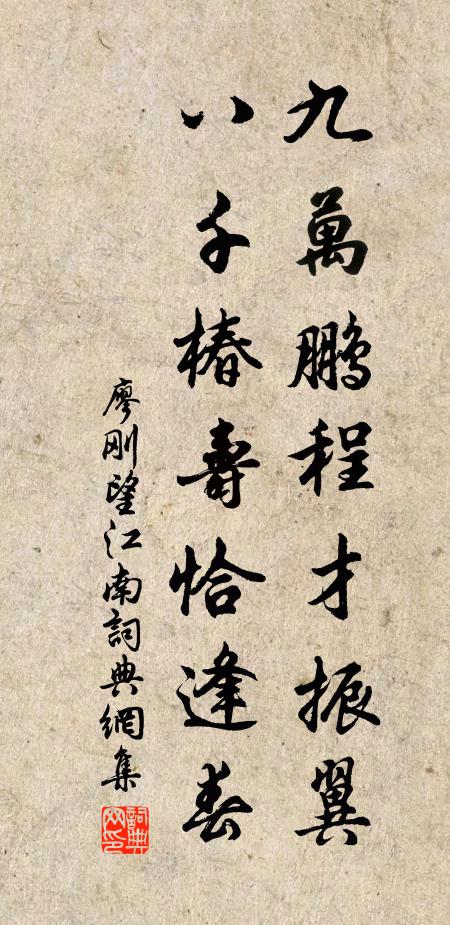 九萬鵬程才振翼
八千椿壽恰逢春
廖刚望江南詞典網集
詞典网印